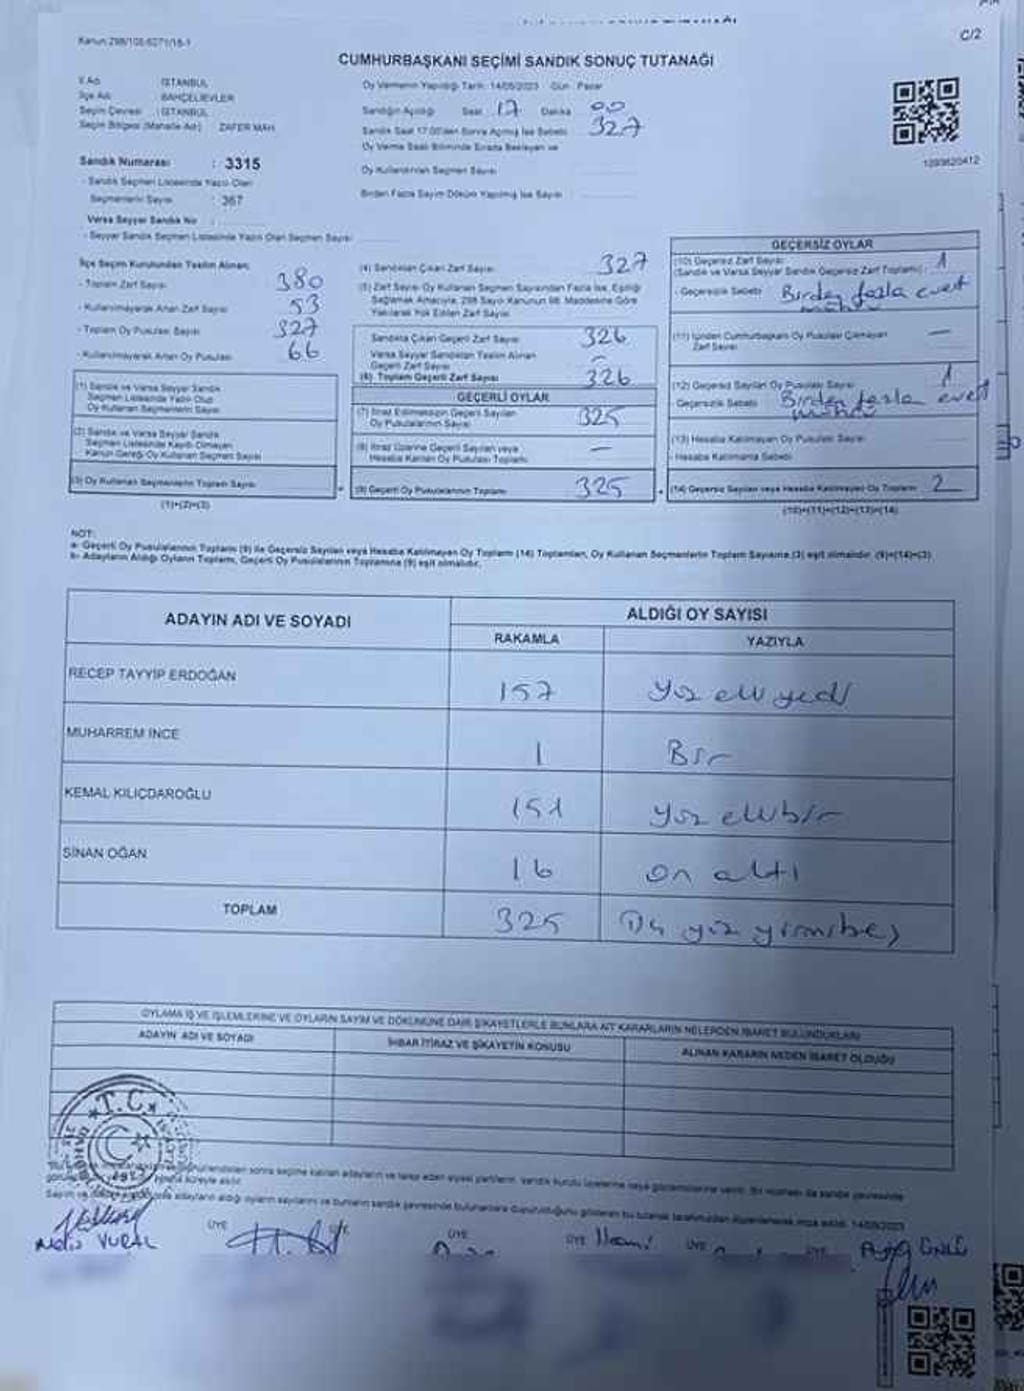 Kanun 298/105-6271/18-1
C/2
CUMHURBAŞKANI SEÇİMİ SANDIK SONUÇ TUTANAĞI
İl Adı : İSTANBUL
İlçe Adı : BAHÇELİEVLER
Seçim Çevresi : İSTANBUL
Seçim Bölgesi (Mahalle Adı) ZAFER MAH.
Oy Vermenin Yapıldığı Tarih: 14/05/2023 Gün: Pazar
Sandığın Açıldığı Saat 17 Dakika 00
Sandık Saat 17:00'den Sonra Açılmış İse Sebebi 327
Oy Verme Saati Bitiminde Sırada Bekleyen ve
Oy Kullandırılan Seçmen Sayısı
Birden Fazla Sayım Döküm Yapılmış İse Sayısı
1293620412
Sandık Numarası : 3315
- Sandık Seçmen Listesinde Yazılı Olan
Seçmenlerin Sayısı : 367
Varsa Seyyar Sandık No :
- Seyyar Sandık Seçmen Listesinde Yazılı Olan Seçmen Sayısı
İlçe Seçim Kurulundan Teslim Alınan;
- Toplam Zarf Sayısı 380
- Kullanılmayarak Artan Zarf Sayısı 53
- Toplam Oy Pusulası Sayısı 327
- Kullanılmayarak Artan Oy Pusulası 66
(1) Sandık ve Varsa Seyyar Sandık
Seçmen Listesinde Yazılı Olup
Oy Kullanan Seçmenlerin Sayısı
(2) Sandık ve Varsa Seyyar Sandık
Seçmen Listesinde Kayıtlı Olmayan
Kanun Gereği Oy Kullanan Seçmen Sayısı
(3) Oy Kullanan Seçmenlerin Toplam Sayısı
(1)+(2)=(3)
(4) Sandıktan Çıkan Zarf Sayısı 327
(5) Zarf Sayısı Oy Kullanan Seçmen Sayısından Fazla İse, Eşitliği
Sağlamak Amacıyla, 298 Sayılı Kanunun 98. Maddesine Göre
Yakılarak Yok Edilen Zarf Sayısı
Sandıkta Çıkan Geçerli Zarf Sayısı 326
Varsa Seyyar Sandıktan Teslim Alınan
Geçerli Zarf Sayısı –
(6) Toplam Geçerli Zarf Sayısı 326
GEÇERLİ OYLAR
(7) İtiraz Edilmeksizin Geçerli Sayılan
Oy Pusulalarının Sayısı 325
(8) İtiraz Üzerine Geçerli Sayılan veya
Hesaba Katılan Oy Pusulası Toplamı —
(9) Geçerli Oy Pusulalarının Toplamı 325
GEÇERSİZ OYLAR
(10) Geçersiz Zarf Sayısı 1
(Sandık ve Varsa Seyyar Sandık Geçersiz Zarf Toplamı)
- Geçersizlik Sebebi Birden fazla evet
mühürü
(11) İçinden Cumhurbaşkanı Oy Pusulası Çıkmayan
Zarf Sayısı —
(12) Geçersiz Sayılan Oy Pusulası Sayısı 1
- Geçersizlik Sebebi Birden fazla evet
mühürü
(13) Hesaba Katılmayan Oy Pusulası Sayısı
- Hesaba Katılmama Sebebi
(14) Geçersiz Sayılan veya Hesaba Katılmayan Oy Toplamı 2
(10)+(11)+(12)+(13)=(14)
NOT:
a- Geçerli Oy Pusulalarının Toplamı (9) ile Geçersiz Sayılan veya Hesaba Katılmayan Oy Toplamı (14) Toplamları, Oy Kullanan Seçmenlerin Toplam Sayısına (3) eşit olmalıdır. (9)+(14)=(3)
b- Adayların Aldığı Oyların Toplamı, Geçerli Oy Pusulalarının Toplamına (9) eşit olmalıdır.
ADAYIN ADI VE SOYADI
ALDIĞI OY SAYISI
RAKAMLA YAZIYLA
RECEP TAYYİP ERDOĞAN 157 Yüz elli yedi
MUHARREM İNCE 1 Bir
KEMAL KILIÇDAROĞLU 151 Yüz elli bir
SİNAN OĞAN 16 on altı
TOPLAM 325 Üç yüz yirmi beş
OYLAMA İŞ VE İŞLEMLERİNE VE OYLARIN SAYIM VE DÖKÜMÜNE DAİR ŞİKAYETLERLE BUNLARA AİT KARARLARIN NELERDEN İBARET BULUNDUKLARI
ADAYIN ADI VE SOYADI İHBAR İTİRAZ VE ŞİKAYETİN KONUSU ALINAN KARARIN NEDEN İBARET OLDUĞU
T.C.
VURAL
ÜYE
ÜYE
ÜYE
ÜYE
ÜYE
ÜNLÜ